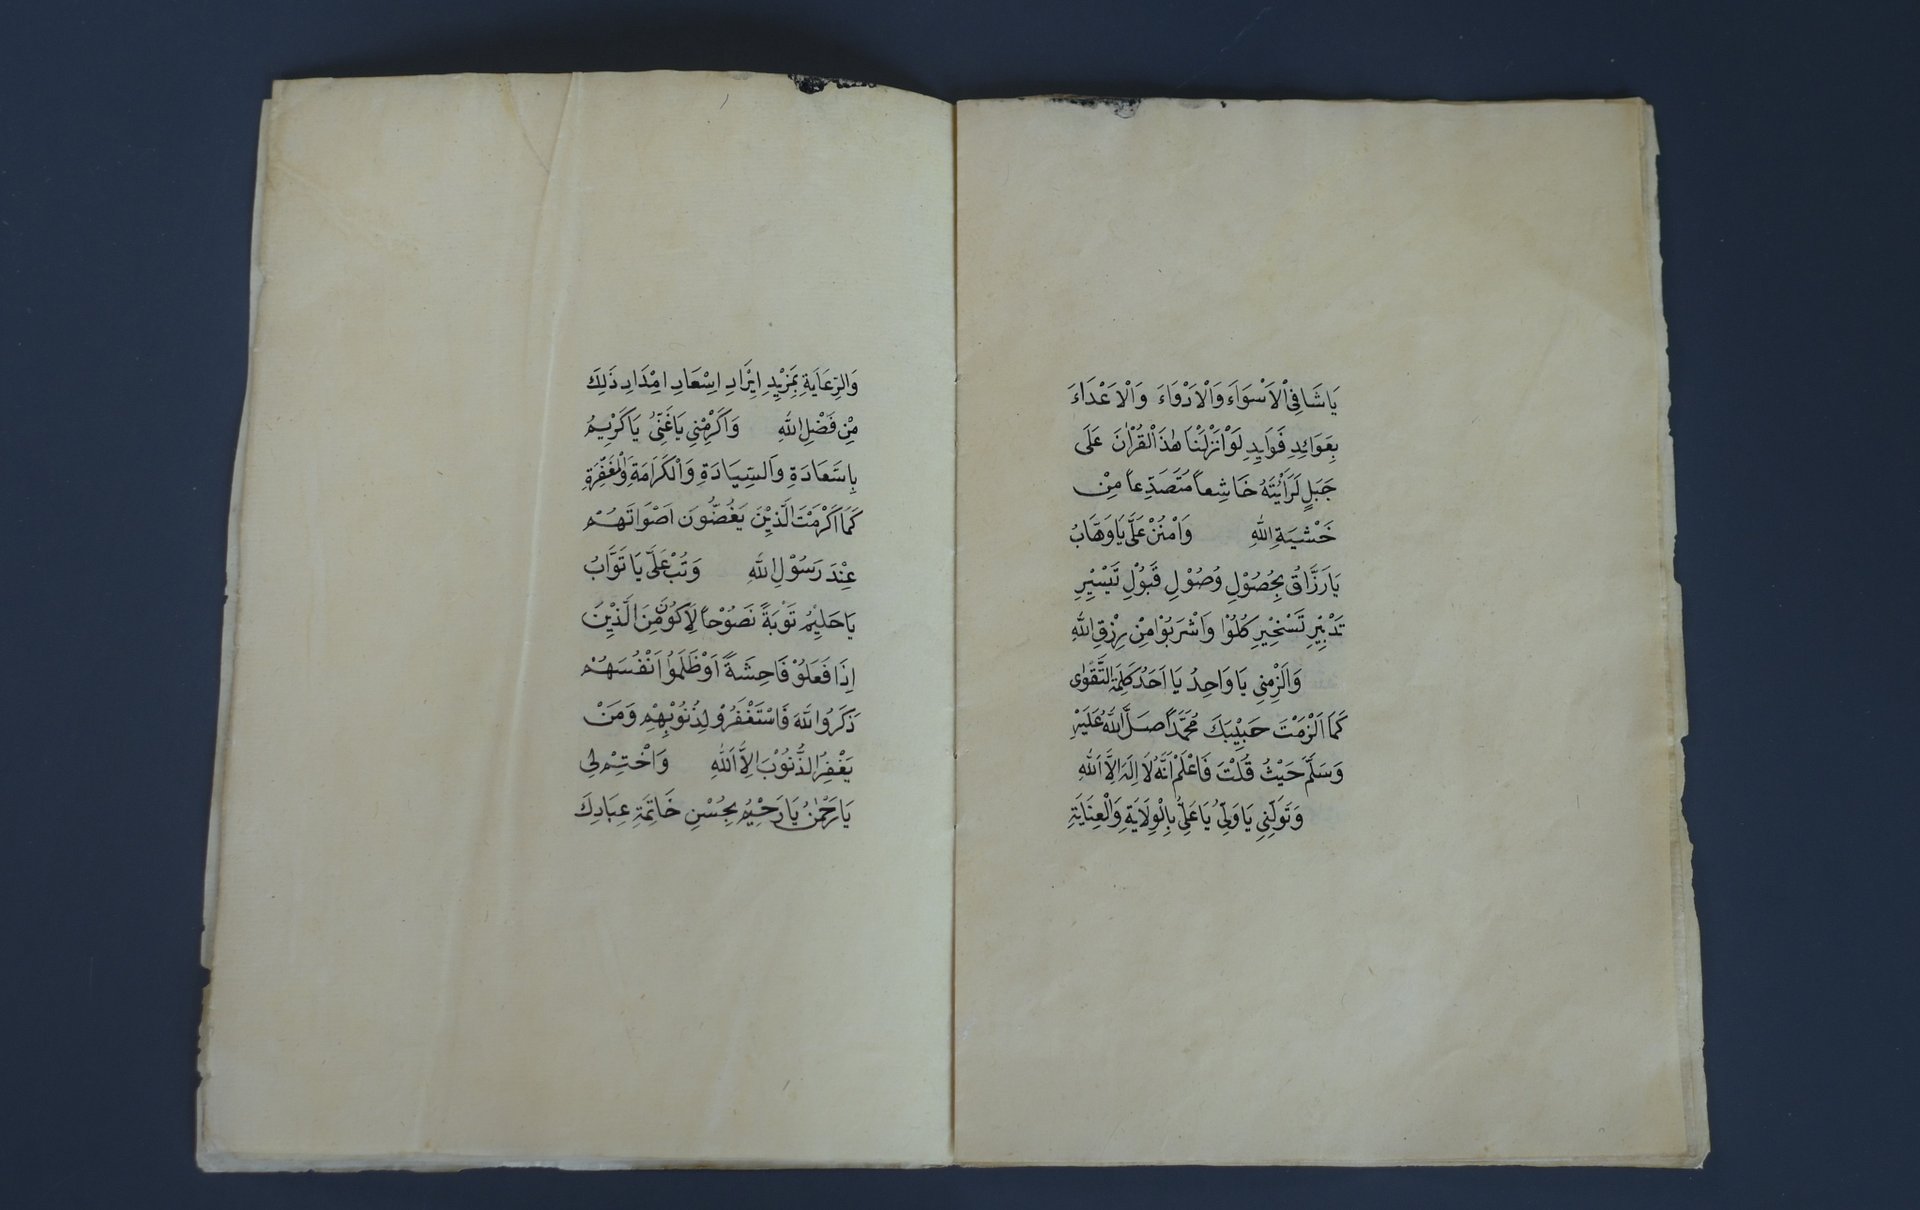 يَا شَافِيَ الْاَسْوَاءِ وَالْاَدْوَاءِ وَالْاَعْدَاءِ
بِعَوَائِدِ فَوَايِدِ لَوْ اَنْزَلْنَا هٰذَا الْقُرْاٰنَ عَلَى
جَبَلٍ لَرَاَيْتَهُ خَاشِعاً مُتَصَدِّعاً مِنْ
خَشْيَةِ اللّٰهِ وَامْنُنْ عَلَيَّ يَا وَهَّابُ
يَا رَزَّاقُ بِحُصُوْلِ وُصُوْلِ قَبُوْلِ تَيْسِيْرِ
تَدْبِيْرِ تَسْخِيْرِ كُلُوْا وَاشْرَبُوْا مِنْ رِزْقِ اللّٰهِ
وَاَلْزِمْنِي يَا وَاحِدُ يَا اَحَدُ كَلِمَةَ التَّقْوٰى
كَمَا اَلْزَمْتَ حَبِيْبَكَ مُحَمَّداً صَلَّى اللّٰهُ عَلَيْهِ
وَسَلَّمَ حَيْثُ قُلْتَ فَاعْلَمْ اَنَّهُ لَا اِلٰهَ اِلَّا اللّٰهُ
وَتَوَلَّنِي يَا وَلِيُّ يَا عَلِيُّ بِالْوِلَايَةِ وَالْعِنَايَةِ
وَالرِّعَايَةِ بِمَزِيْدِ اِيْرَادِ اِسْعَادِ اِمْدَادِ ذٰلِكَ
مِنْ فَضْلِ اللّٰهِ وَاَكْرِمْنِي يَا غَنِيُّ يَا كَرِيْمُ
بِاسَّعَادَةِ وَالسِّيَادَةِ وَالْكَرَامَةِ وَالْمَغْفِرَةِ
كَمَا اَكْرَمْتَ الَّذِيْنَ يَغُضُّوْنَ اَصْوَاتَهُمْ
عِنْدَ رَسُوْلِ اللّٰهِ وَتُبْ عَلَيَّ يَا تَوَّابُ
يَا حَلِيْمُ تَوْبَةً نَصُوْحاً لِاَكُوْنَ مِنَ الَّذِيْنَ
اِذَا فَعَلُوْ فَاحِشَةً اَوْ ظَلَمُوا اَنْفُسَهُمْ
ذَكَرُوا اللّٰهَ فَاسْتَغْفَرُوْ لِذُنُوْبِهِمْ وَمَنْ
يَغْفِرُ الذُّنُوْبَ اِلَّا اللّٰهُ وَاخْتِمْ لِي
يَا رَحْمٰنُ يَا رَحِيْمُ بِحُسْنِ خَاتِمَةِ عِبَادِكَ